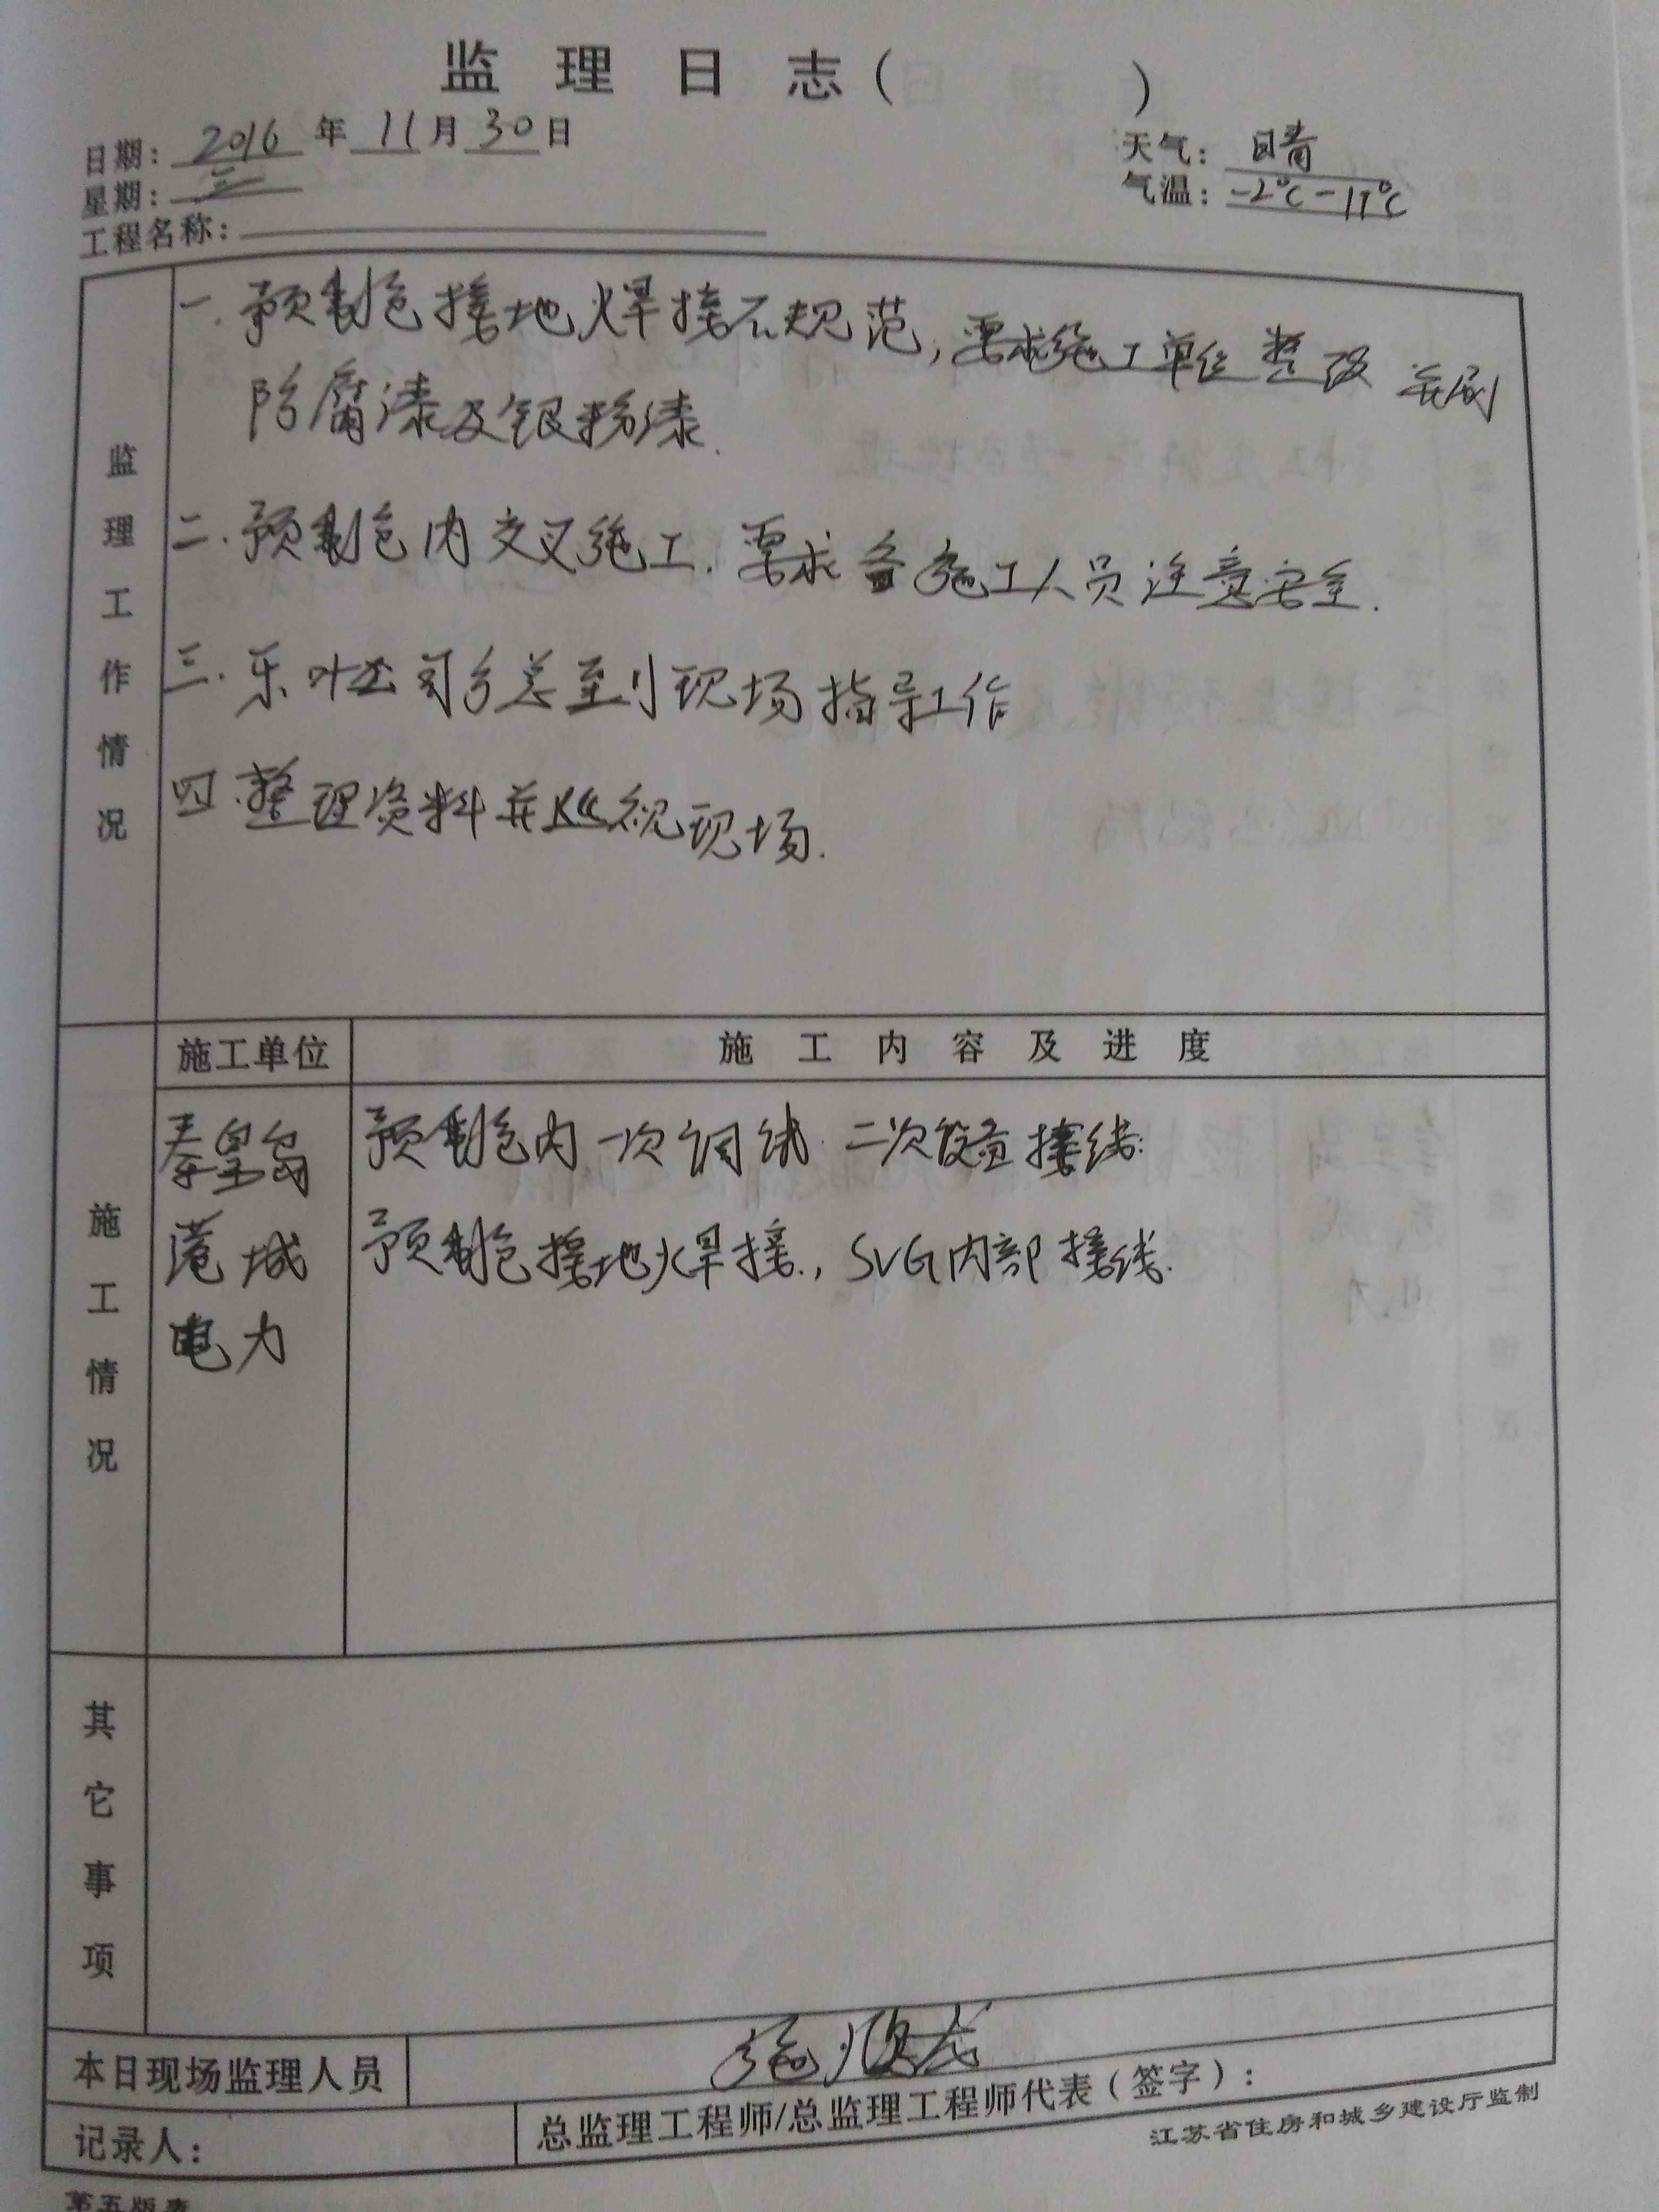 监理日志( )
日期: 2016 年 11 月 30 日
天气: 晴
星期: 三
气温: -2℃-11℃
工程名称:
监理工作情况
一.预制仓接地焊接不规范,要求施工单位整改并刷
防腐漆及银粉漆.
二.预制仓内交叉施工.要求各施工人员注意安全.
三.乐叶公司 总至到现场指导工作
四.整理资料并巡视现场.
施工情况
施工单位
施工内容及进度
秦皇岛
港城
电力
预制仓内一次调试.二次设备接线.
预制仓接地焊接.,SVG内部接线.
其它事项
本日现场监理人员
记录人:
总监理工程师/总监理工程师代表(签字):
江苏省住房和城乡建设厅监制
第五版表